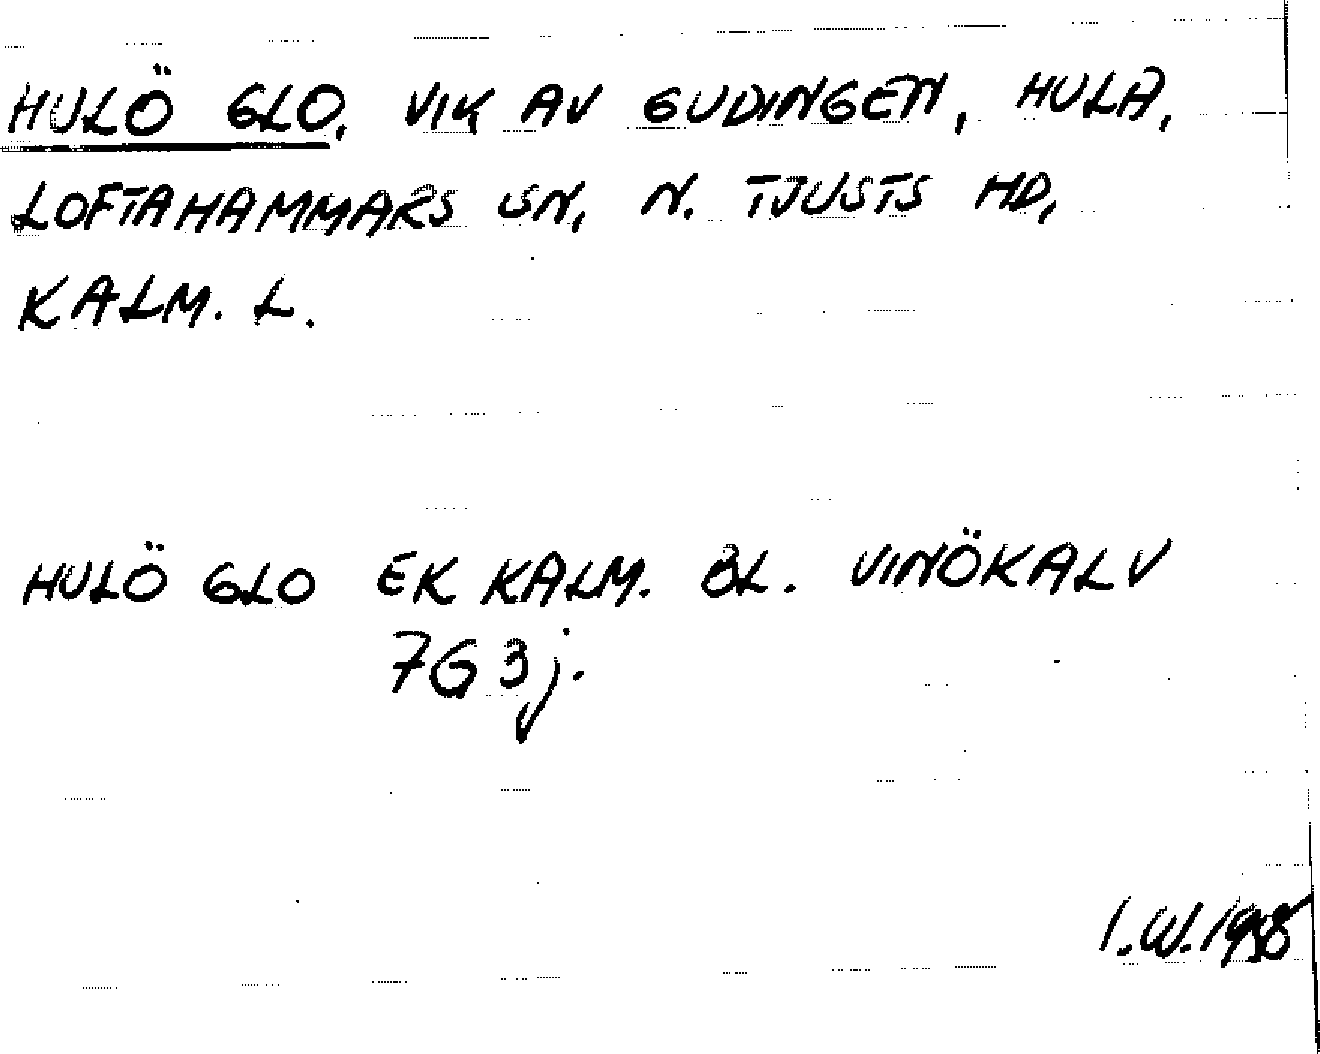 HULÖ GLO, VIK AV GUDINGEN, HULA,
LOFTAHAMMARS SN, N. TJUSTS HD,
KALM. L.
HULÖ GLO EK KALM. BL. VINÖKALV
7G 3j.
I.W.